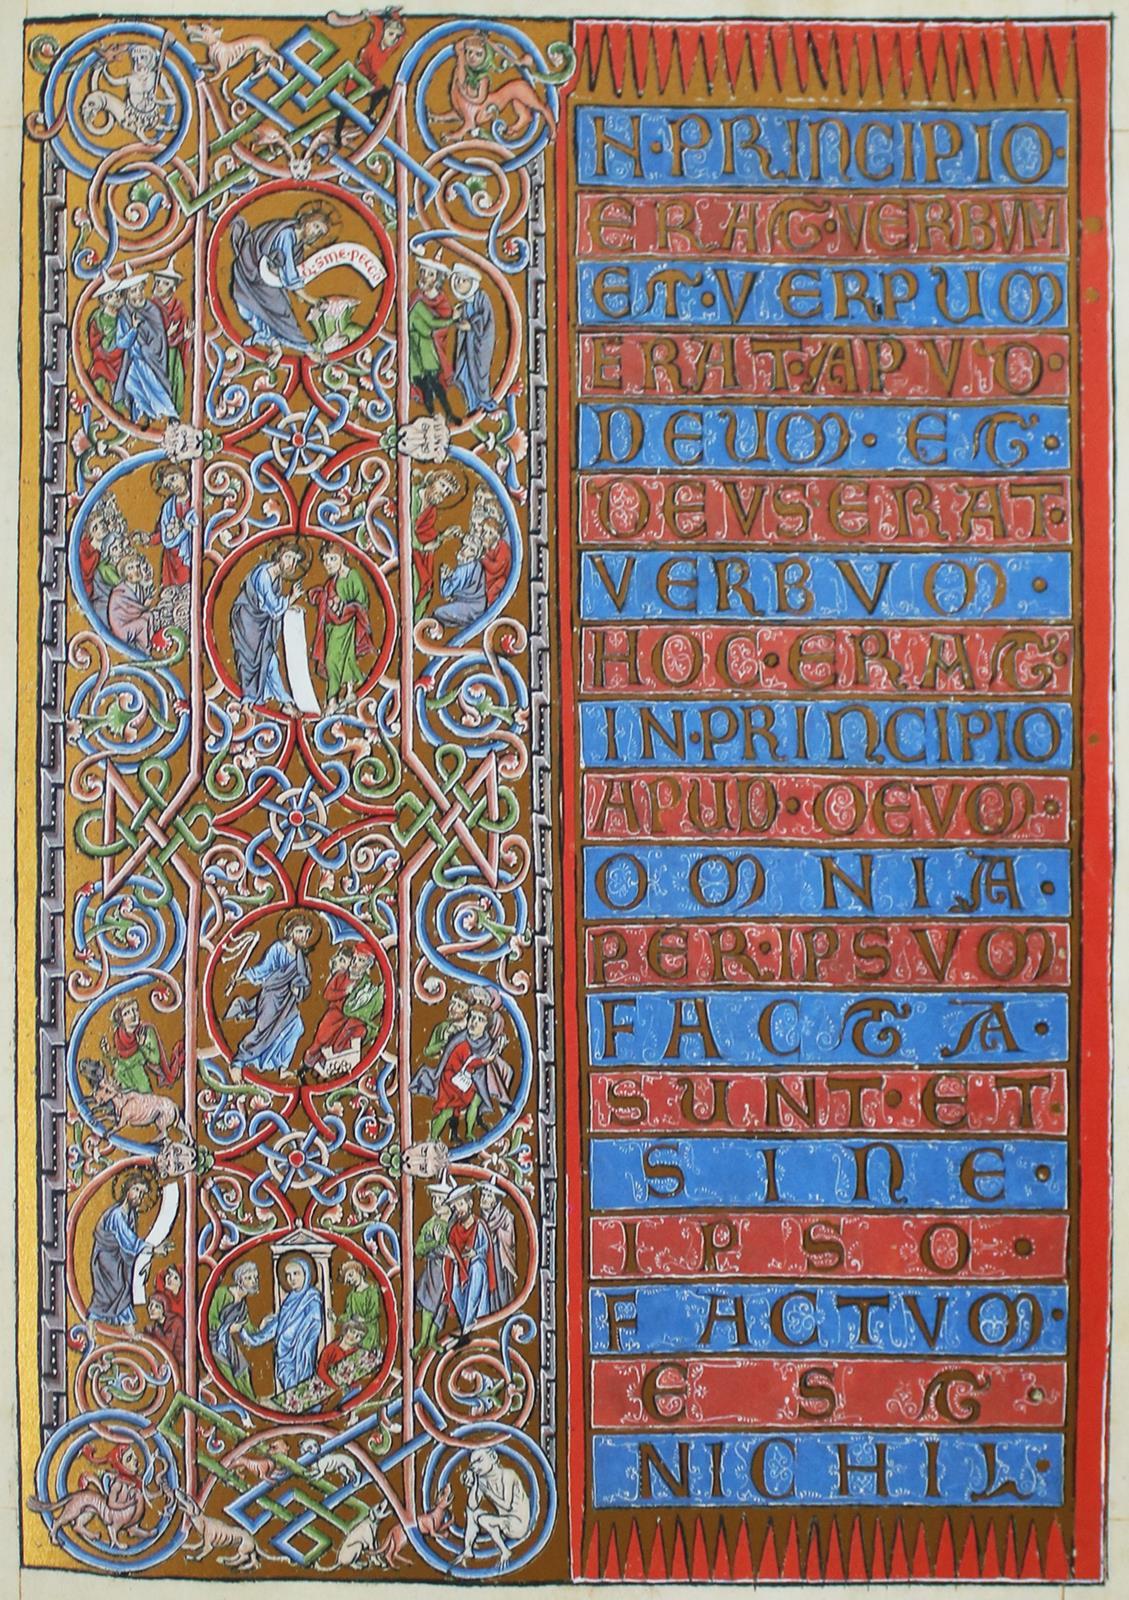 SINE·PECCO
N·PRINCIPIO·
ERAT·VERBVM
ET·VERPUM
ERAT·APVD·
DEUM·ET·
DEVS ERAT·
VERBVM·
HOC·ERAT·
IN·PRINCIPIO
APUD·DEVM·
OMNIA·
PER·IPSVM·
FACTA·
SUNT·ET·
SINE·
IPSO·
FACTVM·
EST·
NICHIL·